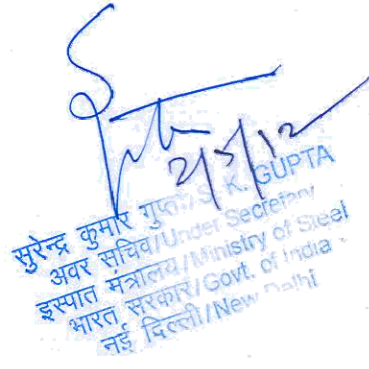 2/5/12
सुरेन्द्र कुमार गुप्ता/S. K. GUPTA
अवर सचिव/Under Secretary
इस्पात मंत्रालय/Ministry of Steel
भारत सरकार/Govt. of India
नई दिल्ली/New Delhi